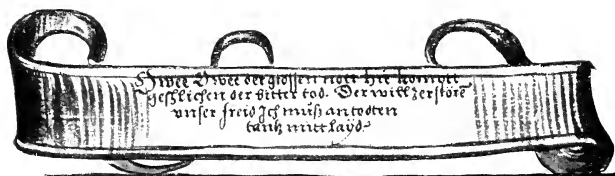 O wee O wee der grossen nott hie kompt
geschlichen der bitter tod. Der will zerstöre
unser freid Ich muß an todten
tantz mitt layd